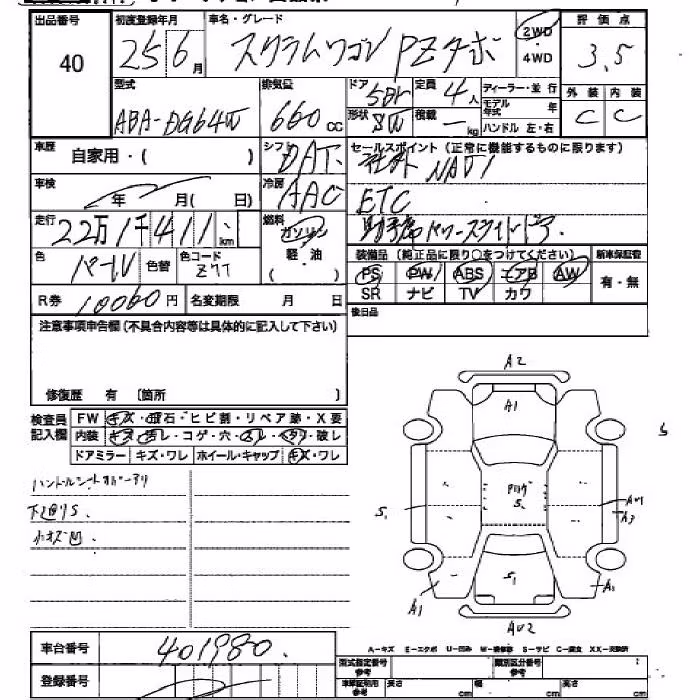 出品番号 初度登録年月 車名・グレード 2WD 評価点
40 25 6月 スクラムワゴン PZターボ ・4WD 3.5
型式 排気量 ドア 5Dr 定員 4人 ディーラー・並行 外装 内装
ABA-DG64W 660cc 形状 SW 積載 ー kg モデル年式 年 C C
ハンドル 左・右
車歴 自家用・( ) シフト DAT セールスポイント(正常に機能するものに限ります)
社外 NAVI
車検 年 月( 日) 冷房 AAC ETC
走行 22万1千411km 燃料 ガソリン 軽・油 ( ) 助手席パワースライドドア
色 パール 色替 色コード Z7T 装備品(純正品に限り○をつけてください) 新車保証書
PS PW ABS エアB AW 有・無
R券 10060円 名変期限 月 日 SR ナビ TV カワ
注意事項申告欄(不具合内容等は具体的に記入して下さい) 後日品
修復歴 有 〔箇所 〕
検査員記入欄 FW キズ・飛石・ヒビ割・リペア跡・X要
内装 キズ・汚レ・コゲ・穴・スレ・ヘタリ・破レ
ドアミラー キズ・ワレ ホイール・キャップ キズ・ワレ
下廻りS.
小キズ凹.
A2
A1
S
S1
S.
A3
S1
A1
A1
車台番号 401980.
登録番号
A-キズ E-エクボ U-凹み W-補修跡 S-サビ C-腐食 XX-交換済
型式指定番号 参考 類別区分番号 参考
車庫証明用 参考 長さ cm 幅 cm 高さ cm